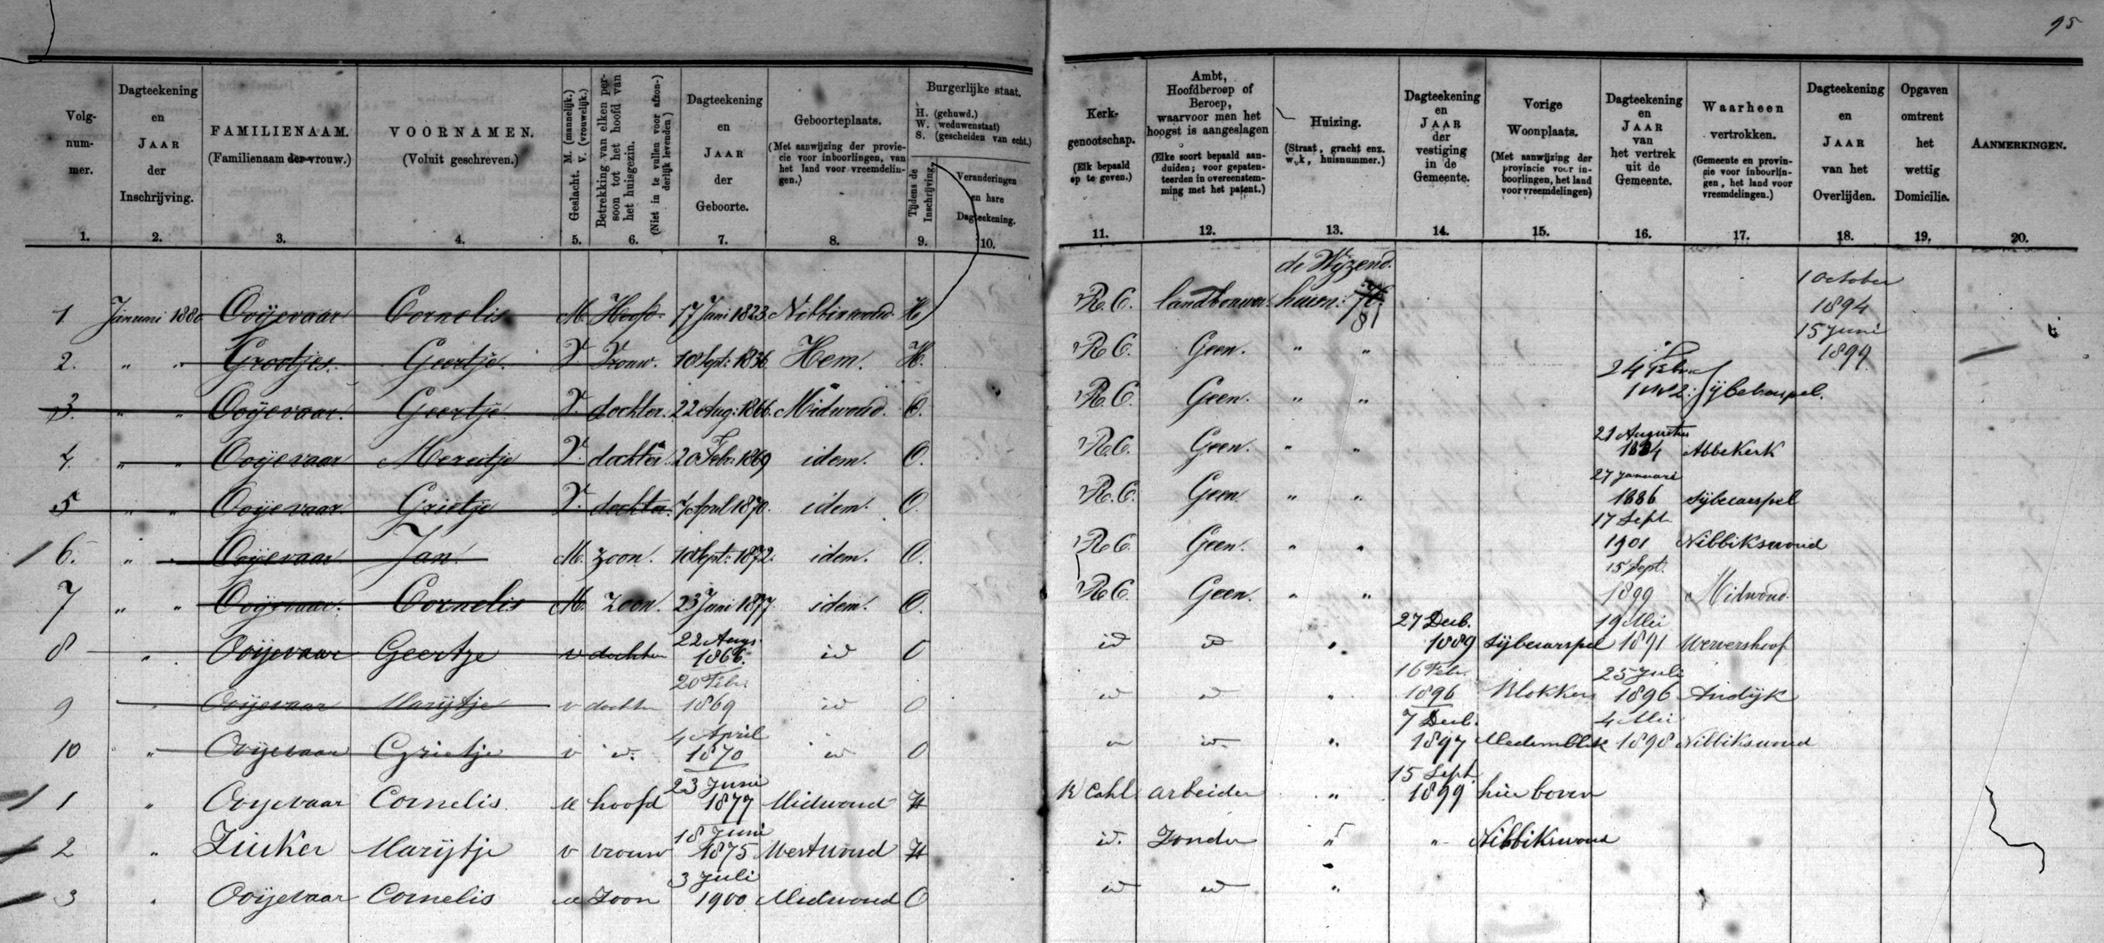 95
Volgnummer. 1.
Dagteekening en JAAR der Inschrijving. 2.
FAMILIENAAM. (Familienaam der vrouw.) 3.
VOORNAMEN. (Voluit geschreven.) 4.
Geslacht. M. (mannelijk.) V. (vrouwelijk.) 5.
Betrekking van elken persoon tot het hoofd van het huisgezin. (Niet in te vullen voor afzonderlijk levenden) 6.
Dagteekening en JAAR der Geboorte. 7.
Geboorteplaats. (Met aanwijzing der provincie voor inboorlingen, van het land voor vreemdelingen.) 8.
Burgerlijke staat. H. (gehuwd.) W. (weduwenstaat) S. (gescheiden van echt.)
Tijdens de Inschrijving. 9.
Veranderingen en hare Dagteekening. 10.
Kerkgenootschap. (Elk bepaald op te geven.) 11.
Ambt, Hoofdberoep of Beroep, waarvoor men het hoogst is aangeslagen (Elke soort bepaald aanduiden; voor gepatenteerden in overeenstemming met het patent.) 12.
Huizing. (Straat, gracht enz. wijk, huisnummer.) 13.
Dagteekening en JAAR der vestiging in de Gemeente. 14.
Vorige Woonplaats. (Met aanwijzing der provincie voor inboorlingen, het land voor vreemdelingen) 15.
Dagteekening en JAAR van het vertrek uit de Gemeente. 16.
Waarheen vertrokken. (Gemeente en provincie voor inboorlingen, het land voor vreemdelingen.) 17.
Dagteekening en JAAR van het Overlijden. 18.
Opgaven omtrent het wettig Domicilie. 19.
AANMERKINGEN. 20.
1 Januari 1880 Ooijevaar Cornelis M. Hoofd 17 Juni 1823 Nibbixwoud H R.C. landbouwer de Wijzend. huisn: 81 1 October 1894
2. " " Grootjes Geertje V. Vrouw. 10 Sept: 1836 Hem. H. R.C. Geen. " " 15 Juni 1899
3. " " Ooijevaar Geertje V. dochter. 22 Aug: 1866. Midwoud. O. R.C. Geen. " " 24 Sijbekarspel.
4. " " Ooijevaar Mereitje V. dochter. 20 Febr. 1869 idem. O. R.C. Geen. " " 21 Augustus 1884 Abbekerk
5 " " Ooijevaar Grietje V. dochter. April 1870. idem. O. R.C. Geen " " 27 Januari 1886 Sijbecarspel
6. " " Ooijevaar Jan. M. zoon. 10 Sept: 1872. idem. O. R.C. Geen. " " 17 Sept 1901 Nibbikswoud
7 " " Ooijevaar. Cornelis M. Zoon. 23 Juni 1877 idem. O. R.C. Geen. " " 15 Sept. 1899 Midwoud.
8 " Ooijevaar Geertje v dochter 22 Augs. 1866. id O id id " 27 Decb. 1889 Sijbecarspel 19 Mei 1891 Wervershoof
9 " Ooijevaar Marijtje v dochter 20 Febr. 1869 id O id id " 16 Febr. 1896 Blokker 25 Juli 1896 Andijk
10 " Ooijevaar Grietje v id. 4 April 1870 id O id id. " 7 Decb. 1897 Medemblik 4 Mei 1898 Nibbikswoud
1 " Ooijevaar Cornelis. m hoofd 23 Juni 1877 Midwoud H R Cahl arbeider " 15 Sept 1899 hierboven
2 " Zuiker Marijtje v vrouw 18 Juni 1875 Westwoud H id. Zonder " " Nibbikswoud
3 " Ooijevaar Cornelis m Zoon 3 Juli 1900 Midwoud O id id "